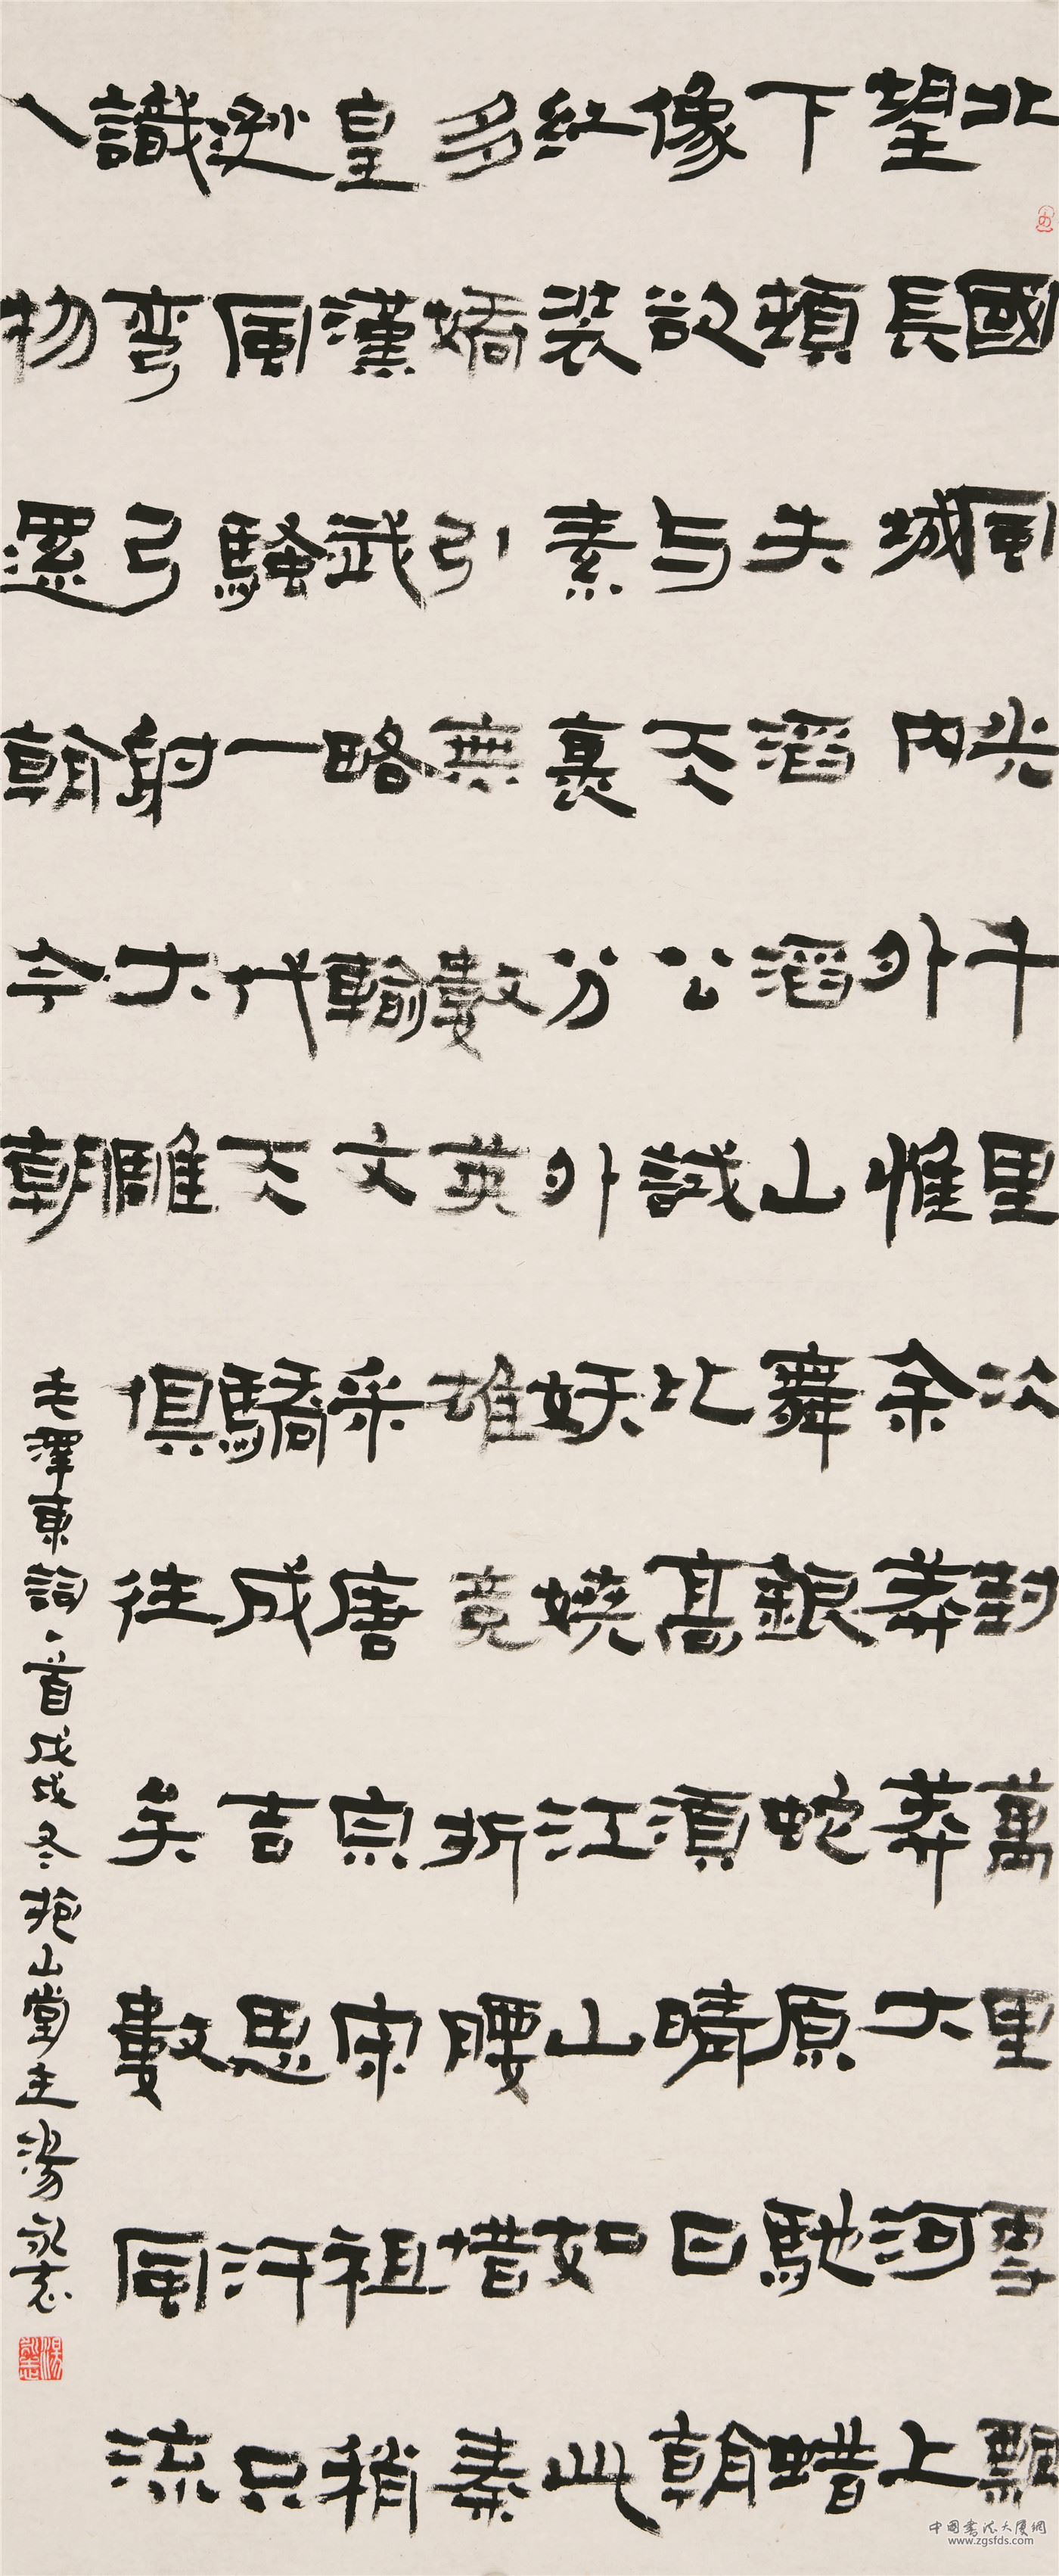 北國風光千里冰封萬里雪飄
望長城內外惟余莽莽大河上
下頓失滔滔山舞銀蛇原馳蜡
像欲与天公試比高須晴日看
紅裝素裹分外妖嬈江山如此
多嬌引無數英雄竞折腰惜秦
皇漢武略輸文采唐宗宋祖稍
遜風騷一代天驕成吉思汗只
識彎弓射大雕俱往矣數風流
人物還看今朝
毛澤東詞一首戊戌冬抱山堂主湯永志
湯永志
中國書法大廈網
www.zgsfds.com